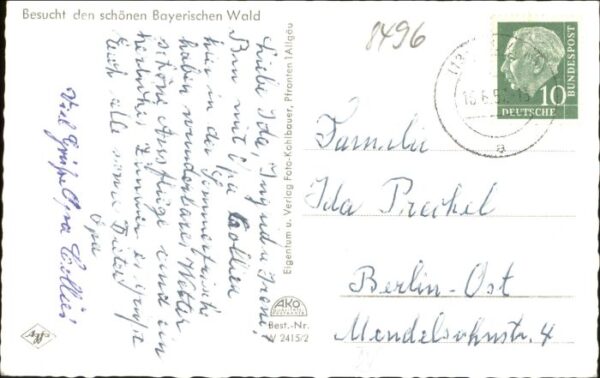 Besucht den schönen Bayerischen Wald
8496
Liebe Ida, Ingrid u. Irene!
Bin mit Opa Collien
hier in der Sommerfrische
haben wunderbares Wetter
schöne Ausflüge und ein
herrliches Zimmer. Es grüßt
Euch alle
Opa
Viel Grüße Opa Collien
Eigentum u. Verlag Foto-Kohlbauer, Pfronten i. Allgäu
AKO
Best.-Nr.
W 2415/2
Agfa
10
DEUTSCHE
BUNDESPOST
a
Familie
Ida Preckel
Berlin-Ost
Mendelsohnstr. 4